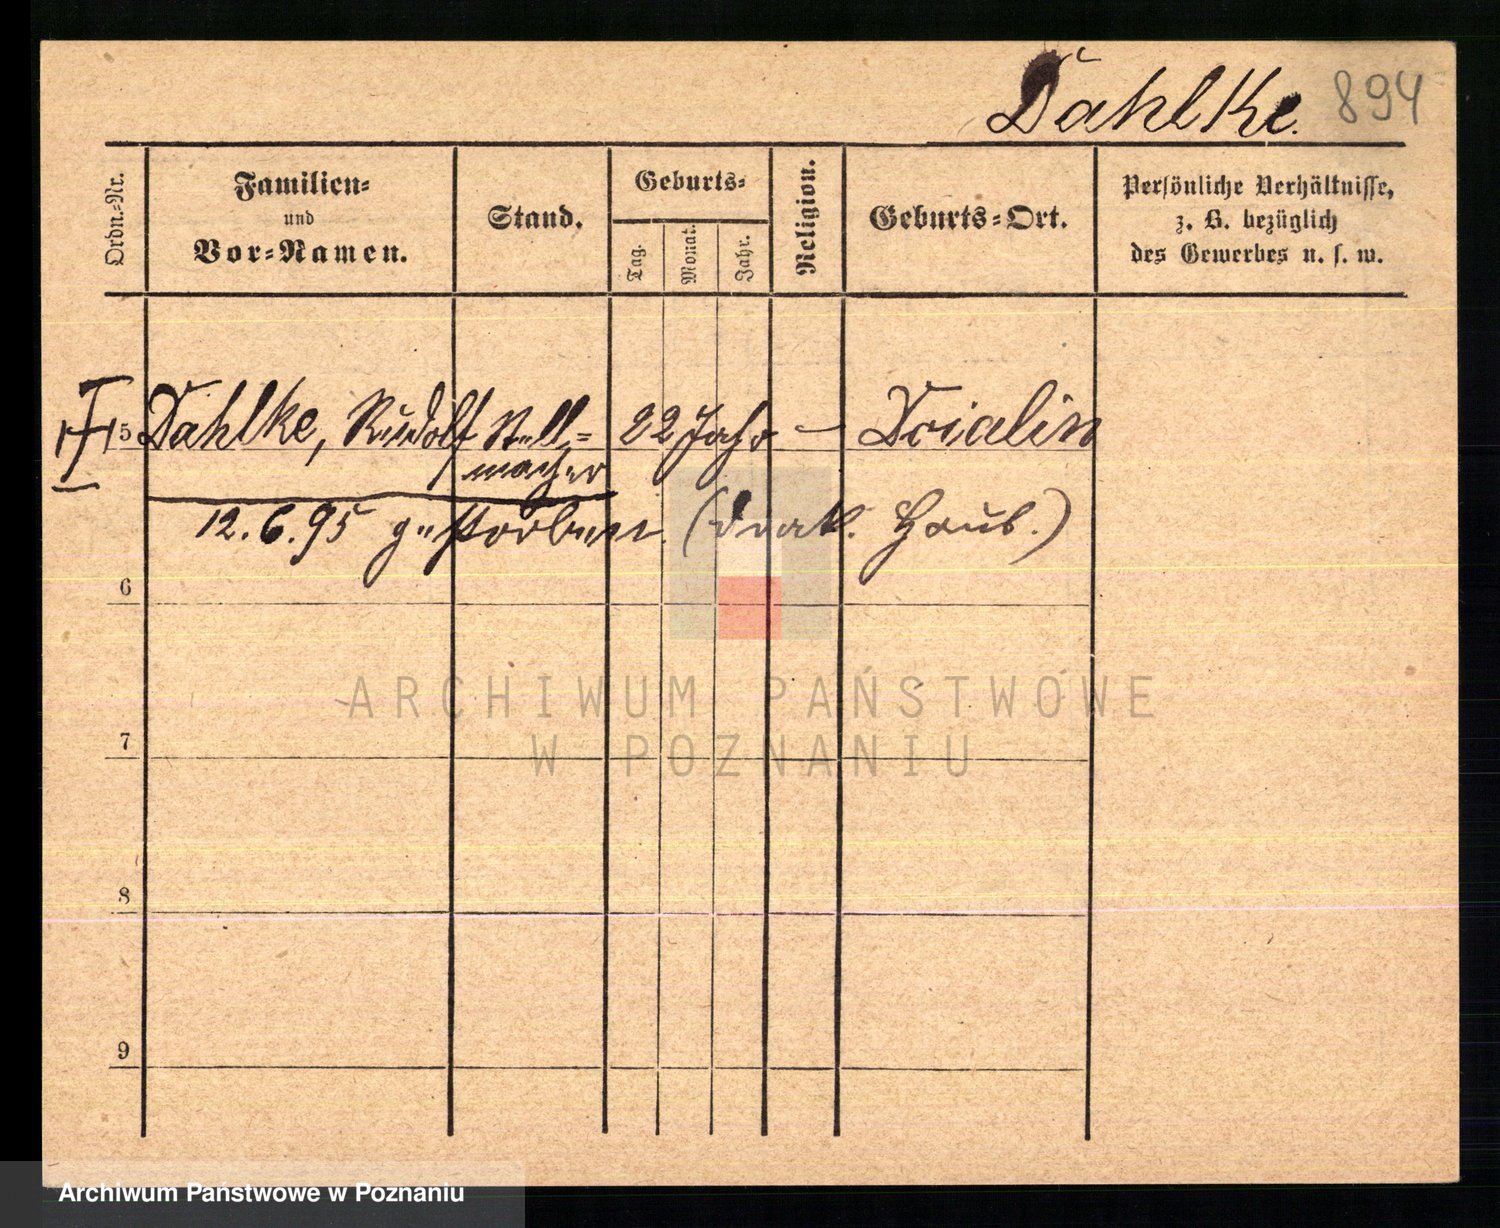 Dahlke. 894
Ordn.-Nr.
Familien-
und
Vor-Namen.
Stand.
Geburts-
Tag.
Monat.
Jahr.
Religion.
Geburts-Ort.
Persönliche Verhältnisse,
z. B. bezüglich
des Gewerbes u. s. w.
5 Dahlke, Rudolf Stell= 22 Jahr –
macher
12.6.95 gestorben. (Diak. Haus.)
6
7
8
9
ARCHIWUM PAŃSTWOWE
W POZNANIU
Archiwum Państwowe w Poznaniu